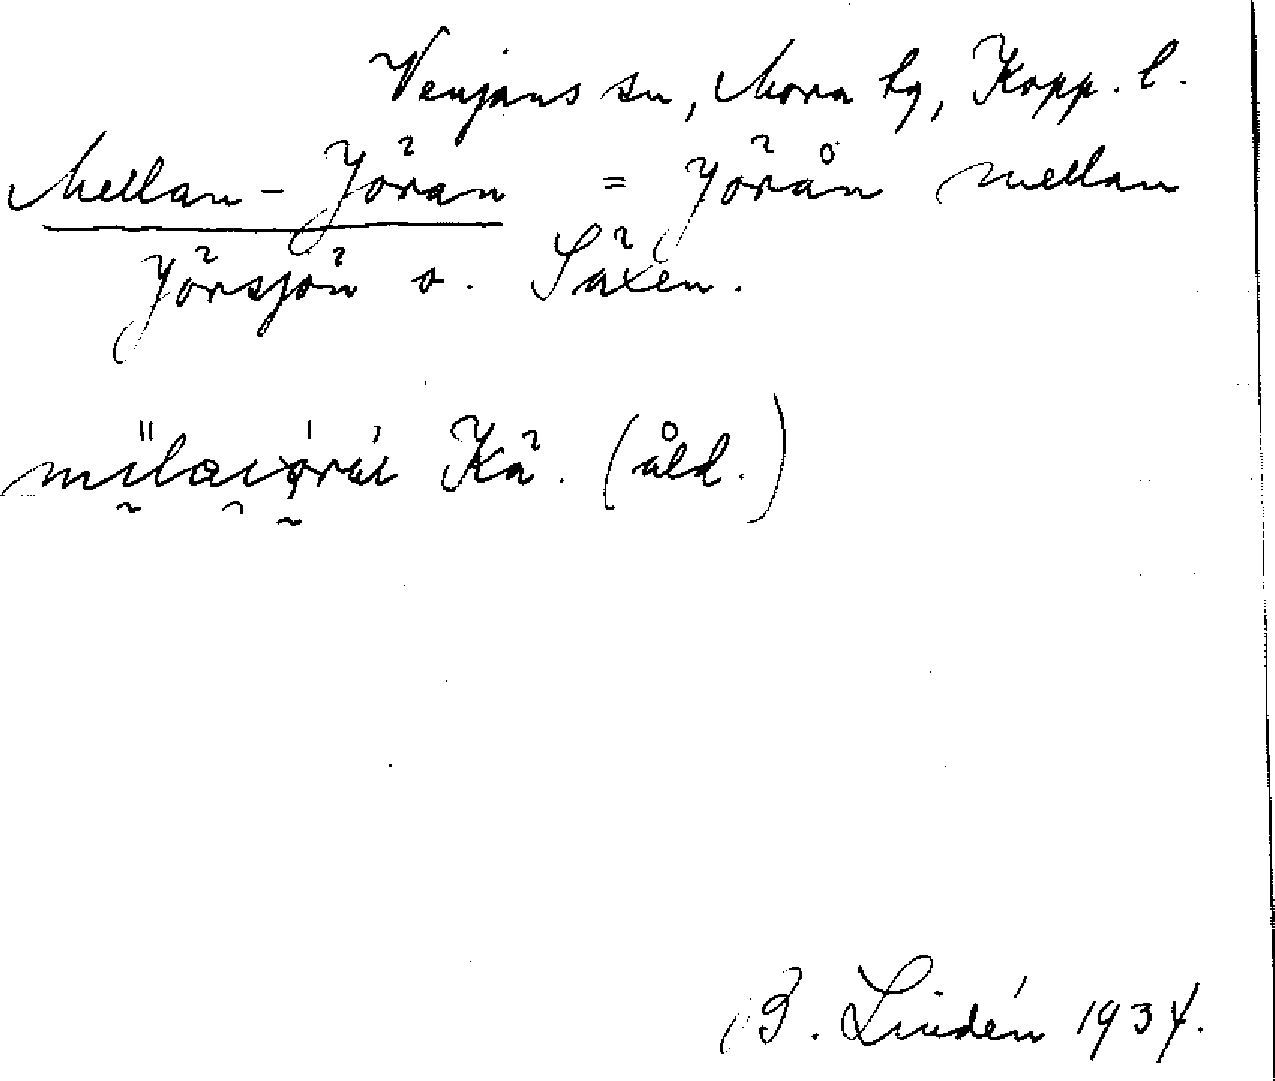 Venjans sn, Mora hg, Kopp. l.
Mellan-Jöran = Jörån mellan
Jörsjön o. Säxen.
Kä. (åld.)
B. Lindén 1934.